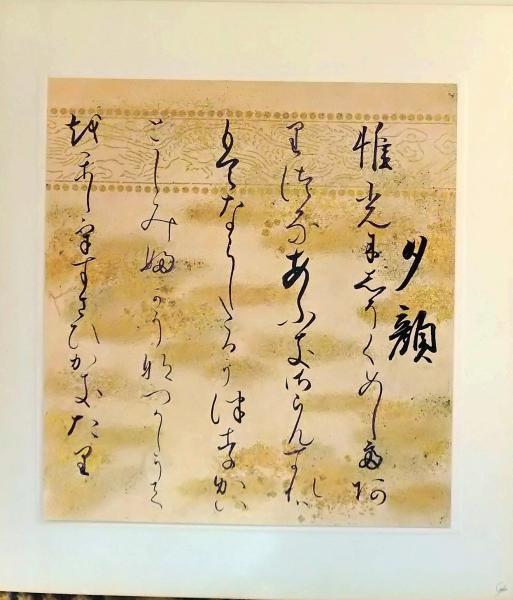 夕顔
惟光にしそくめしてあ
りつるあふき御らんすれは
もてならしたるうつりかい
としみふかうなつかしうて
をかしうすさひかきたり